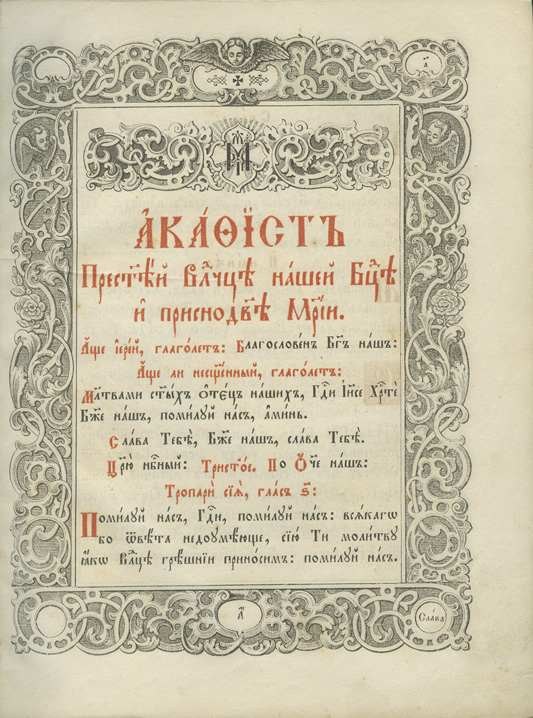 а҃
АКА́ѲЇСТЪ
Прест҃ѣ́й Влⷣчцѣ на́шей Бц҃ѣ
и҆ приснодв҃ѣ Мр҃і́и.
А҆́ще і҆ере́й, глаго́летъ: Благослове́нъ Бг҃ъ на́шъ:
А҆́ще ли несщ҃е́нный, глаго́летъ:
Мл҃твами ст҃ы́хъ ѻ҆тє́цъ на́шихъ, Гдⷭ҇и І҆и҃се Хрⷭ҇тѐ
Бж҃е на́шъ, поми́луй на́съ, А҆ми́нь.
Сла́ва Тебѣ̀, Бж҃е на́шъ, сла́ва Тебѣ̀.
Цр҃ю̀ нбⷭ҇ный: Трист҃о́е. По Ѻ҆́ч҃е на́шъ:
Тропари̑ сїѧ̑, гла́съ ѕ҃:
Поми́луй на́съ, Гдⷭ҇и, поми́луй на́съ: всѧ́кагѡ
бо ѿвѣ́та недоꙋмѣ́юще, сїю̀ Ти моли́твꙋ
ꙗ҆́кѡ Влⷣцѣ грѣ́шнїи прино́симъ: поми́луй на́съ.
а҃
Сла́ва